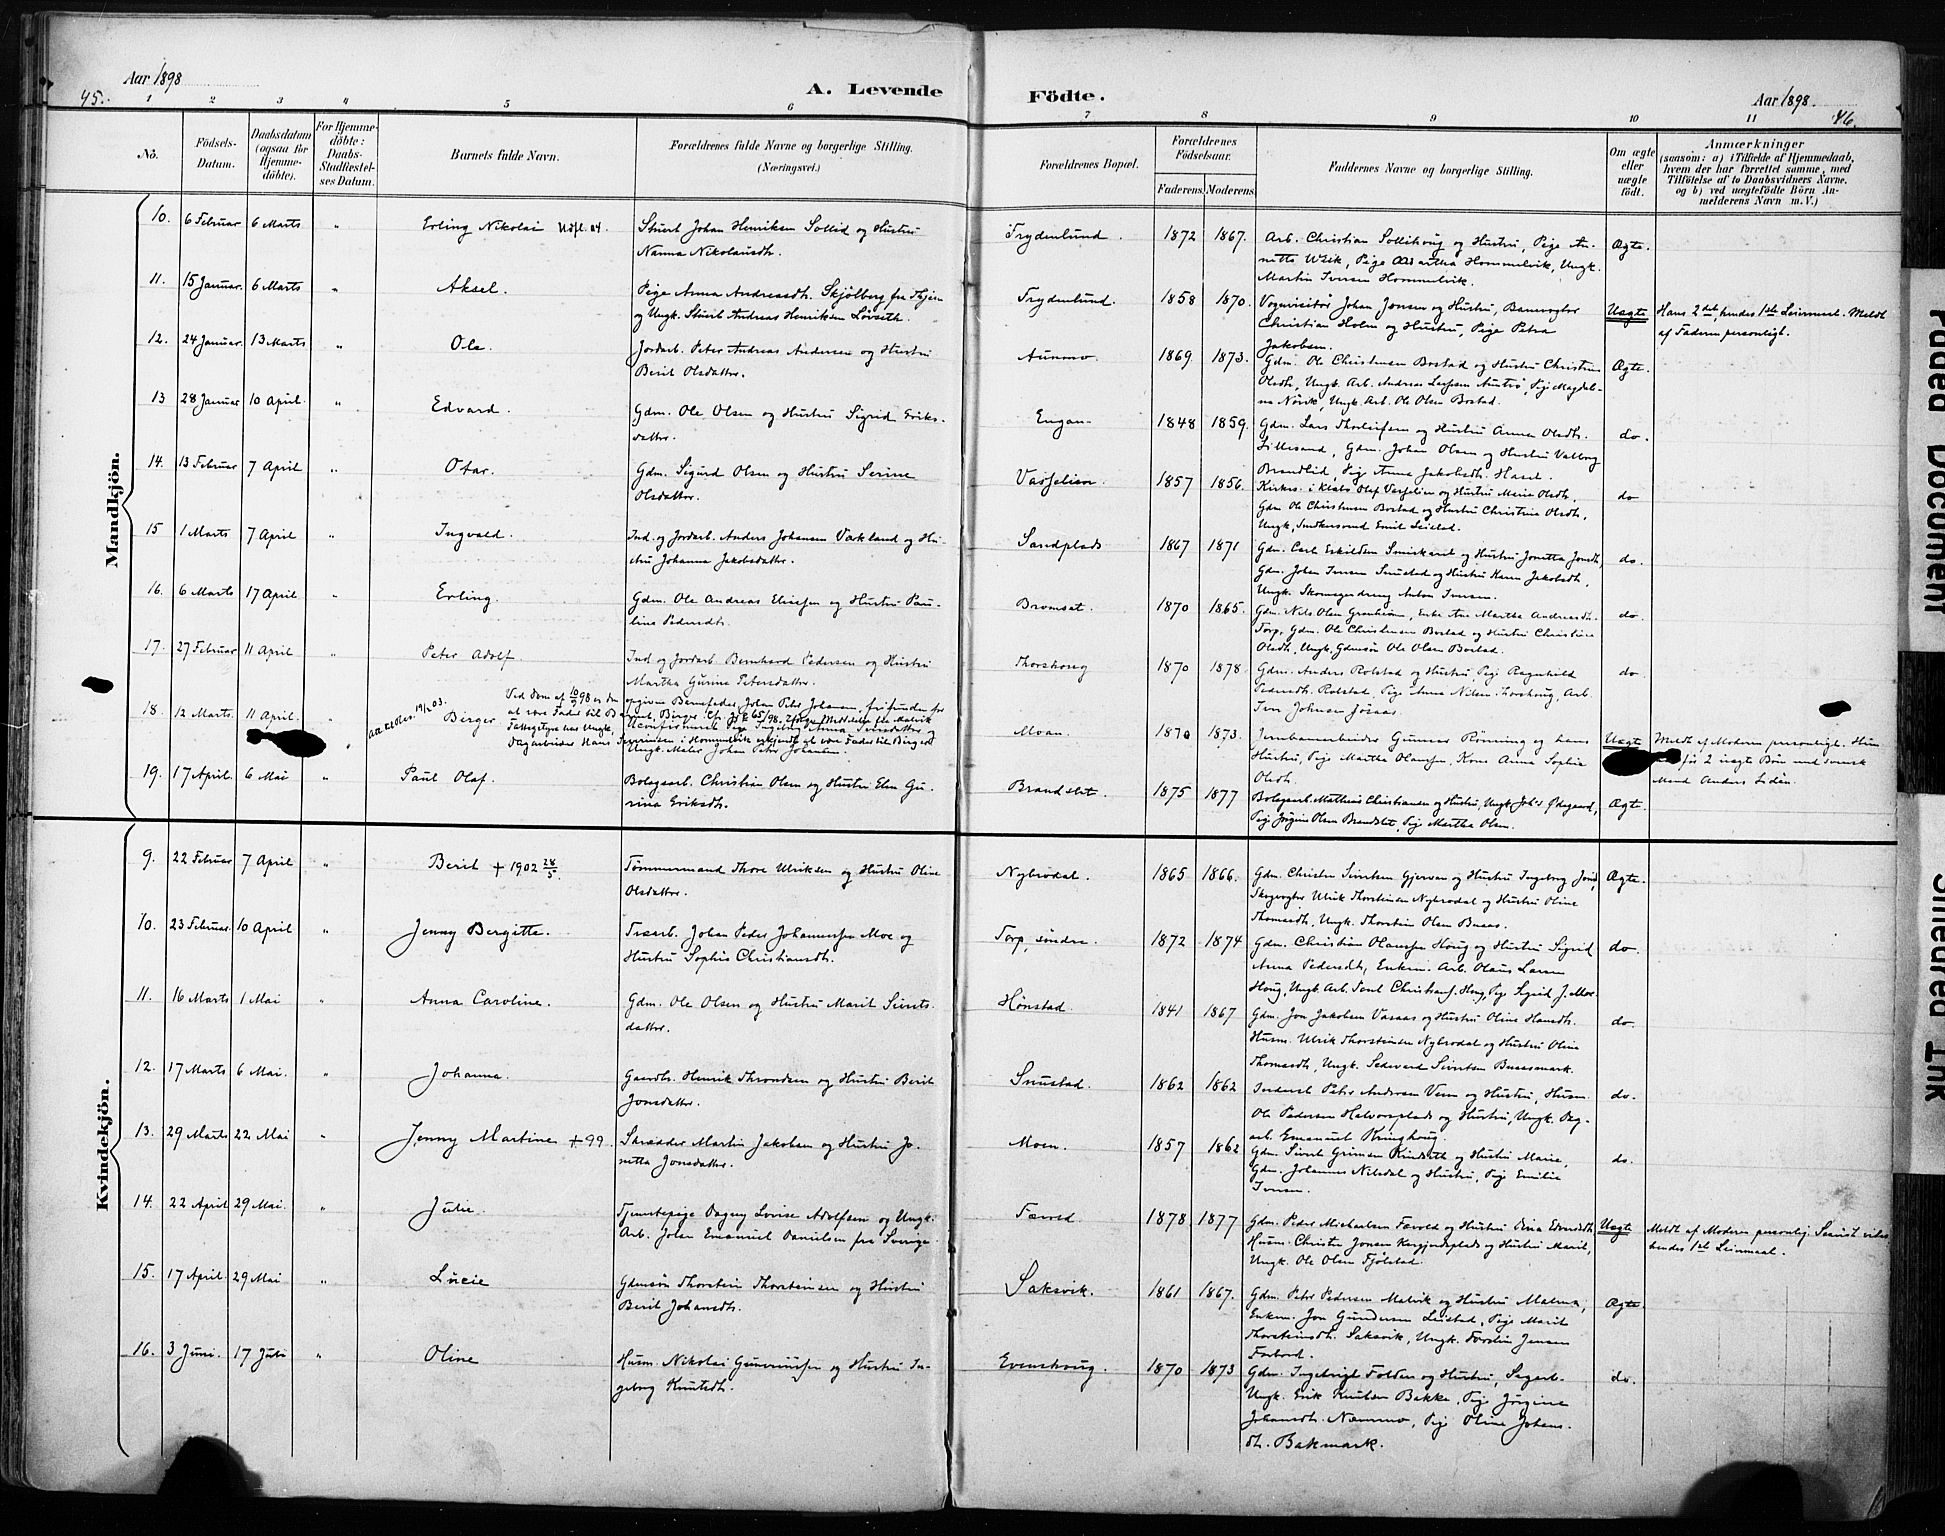 Aar 1898
45.
A. Levende Födte.
Aar 1898.
46.
1 2 3 4 5 6 7 8 9 10 11
No.
Födsels-Datum.
Daabsdatum (ogsaa for Hjemme-döbte).
For Hjemme-döbte: Daabs-Stadfæstel-ses Datum.
Barnets fulde Navn.
Forældrenes fulde Navne og borgerlige Stilling.
(Næringsvei.)
Forældrenes Bopæl.
Forældrenes Födselsaar.
Faderens. Moderens.
Faddernes Navne og borgerlige Stilling.
Om ægte eller uægte födt.
Anmærkninger
(saasom: a) i Tilfælde af Hjemmedaab,
hvem der har forrettet samme, med
Tilföielse af to Daabsvidners Navne.
og b) ved uægtefödte Börn An-
melderens Navn m. V.)
Mandkjön.
10. 6 Februar 6 Marts " Erling Nikolai Udfl. 04. Stuert Johan Henriksen Sollid og Hustru
Nanna Nikolausdtr.
Trydenlund. 1872 1867. Arb. Christian Sollihoug og Hustru, Pige An-
nette Wiik, Pige Martha Hommelvik, Ungk.
Martin Iversen Hommelvik.
Ægte.
11. 15 Januar. 6 Marts " Aksel. Pige Anna Andreasdtr. Skjölberg fra
og Ungk. Stuert Andreas Henriksen Lövseth.
Trydenlund. 1858 1870. Vognvisitör Johan Jonsen og Hustru, Banevogter
Christian Holm og Hustru, Pige Petra
Jakobsen.
Uægte Hans 2det, hendes 1ste Leiermaal. Meldt
af Faderen personligt.
12. 24 Januar 13 Marts " Ole. Jordarb. Peter Andreas Andersen og Hustru
Berit Olsdatter.
Aunmo. 1869 1873. Gdm. Ole Christensen Bostad og Hustru Christine
Olsdtr, Ungk. Arb. Andreas Larssen, Pige Magdale-
na Nervik, Ungk. Arb. Ole Olsen Bostad.
Ægte.
13 28 Januar 10 April. " Edvard. Gdm. Ole Olsen og Hustru Sigrid Eriks-
datter.
Engan 1848 1859. Gdm. Lars Thorleifsen og Hustru Anna Olsdtr.
Lillesand, Gdm. Johan Olsen og Hustru Valborg
Brandlid, Pige Anna Jakobsdtr.
do.
14. 13 Februar 7 April " Otar. Gdm. Sigurd Olsen og Hustru Serine
Olsdatter.
Vasseljen. 1857 1856. Kirkes. i Klæbu Olaf Vasseljen og Hustru Marie Olsdtr,
Gdm Ole Christensen Bostad og Hustru Christine Olsdtr,
Ungk. Emil Leistad.
do
15 1 Marts 7 April " Ingvald. Ind. og Jordarb. Anders Johansen Værkland og Hu-
stru Johanna Jakobsdatter.
Sandplads 1867 1871 Gdm. Carl Eskildsen Smiskaret og Hustru Jonetta Jonsdtr,
Gdm. Johan Iversen Snustad og Hustru Karen Jakobsdtr,
Ungk. Skomagerdreng Anton Iversen.
do.
16. 6 Marts 17 April " Erling. Gdm. Ole Andreas Eliasen og Hustru Pau-
line Pedersdtr.
Bromset. 1870 1865. Gdm. Nils Olsen Grønheim, Enke Ane Martha Andreasdtr.
Torp, Gdm. Ole Christensen Bostad og Hustru Christine
Olsdtr, Ungk. Gdmsön Ole Olsen Bostad.
do.
17. 27 Februar 11 April " Peter Adolf. Ind. og Jordarb. Bernhard Pedersen og Hustru
Martha Gurine Petersdatter.
Thorshoug 1870 1878. Gdm. Anders Rolstad og Hustru, Pige Ragnhild
Pedersdtr. Rolstad, Pige Anna Nilsen Torshoug, Arb.
Iver Johnsen Jøsaas.
do
18. 12 Marts. 11 April. " Birger
Ved Dom af 10/9 98 er den opgivne Barnefader, Johan Peter Johansen, frifunden for
at være Fader til Barnet, Birger.
Fattigstyre har Ungk.
Dagarbeider Hans Severinsen i Hommelvik erkjendt at være Fader til Birger
Ungk. Maler Johan Peter Johansen.
Moan. 1870 1873. Jernbanearbeider Gunnar Rønning og hans
Hustru, Pige Martha Olausen, Kone Anna Sophie
Olsdtr.
Uægte Meldt af Moderen personligt. Hun
för 2 uægte Börn med svensk
Mand Anders Lidén.
19. 17 April. 6 Mai " Paul Olaf. Bolagsarb. Christian Olsen og Hustru Elen Gu-
rina Eriksdtr.
Brandslet. 1875 1877 Bolagsarb. Mathias Christiansen og Hustru, Ungk. Johs Ødegaard,
Pige Jørgine Olsen Brandslet, Pige Martha Olsen.
Ægte.
Kvindekjön.
9. 22 Februar 7 April " Berit + 1902 28/5. Tømmermand Thore Ulriksen og Hustru Oline
Olsdatter.
Nybrodal. 1865 1866. Gdm. Christen Sivertsen Gjervan og Hustru Ingeborg Jonsd,
Skogvogter Ulrik Thorstensen Nybrodal og Hustru Oline
Thomasdtr, Ungk. Thorstein Olsen Buaas.
Ægte.
10. 23 Februar. 10 April " Jenny Bergitte. Træarb. Johan Peder Johannessen Moe og
Hustru Sophie Christiansdtr.
Torp, söndre. 1872 1874 Gdm. Christian Olaussen Houg og Hustru Sigrid
Anna Pedersdtr, Enkem. Arb. Olaus Larsen
Houg, Ungk. Arb. Paul Christians. Houg, Pige Sigrid J. Moe.
do.
11. 16 Marts 1 Mai " Anna Caroline. Gdm. Ole Olsen og Hustru Marit Siverts-
datter.
Hønstad. 1841 1867 Gdm. Jon Jakobsen Vasaas og Hustru Oline Hansdtr.
Husm. Ulrik Thorstensen Nybrodal og Hustru Oline
Thomasdtr, Ungk. Sedevard Sivertsen Buaasmark.
do.
12. 17 Marts 6 Mai. " Johanna. Gaardbr. Henrik Throndsen og Hustru Berit
Jonsdatter.
Snustad. 1862 1862 Inderst Peter Andersen Venn og Hustru, Husm.
Ole Pedersen Halvorsplads og Hustru, Ungk. Dag-
arb. Emanuel Kringhoug.
do.
13. 29 Marts 22 Mai " Jenny Martine + 99. Skrædder Martin Jakobsen og Hustru Jo-
netta Jonsdatter.
Moen. 1857 1862 Gdm. Sivert Grimsen Kindseth og Hustru Marie,
Gdm. Johannes Nilsdal og Hustru, Pige Emilie
Iversen.
do.
14. 22 April 29 Mai. " Julie. Tjenestepige Dagny Lovise Adolfsen og Ungk.
Arb. Johan Emanuel Danielsen fra Sverige.
Færold. 1878 1877 Gdm. Peder Michaelsen Færold og Hustru
Husm. Christen Jonsen og Hustru Marit,
Ungk. Ole Olsen Fjølstad.
Uægte Meldt af Moderen personlig.
hendes 1ste Leiermaal.
15. 17 April 29 Mai " Lucie Gdmsön Thorstein Thorsteinsen og Hustru
Berit Johansdtr.
Saksvik. 1861 1867. Gdm. Peter Pedersen Malvik og Hustru Malena,
Enkem. Jon Gundersen Leistad, Pige Marit
Thorsteinsdtr. Saksvik, Ungk. Jensen
Forbord.
Ægte.
16. 3 Juni. 17 Juli " Oline Husm. Nikolai Gunneriussen og Hustru In-
geborg Knutsdtr.
Evenshoug. 1870 1873 Gdm. Ingebrigt Folden og Hustru, Sagarb-
Ungk. Erik Knutsen Bakke, Pige Jørgine
Johansdtr. Næmmo, Pige Oline Johans-
dtr. Bakmark.
do.
Faded Document
Smeared Ink